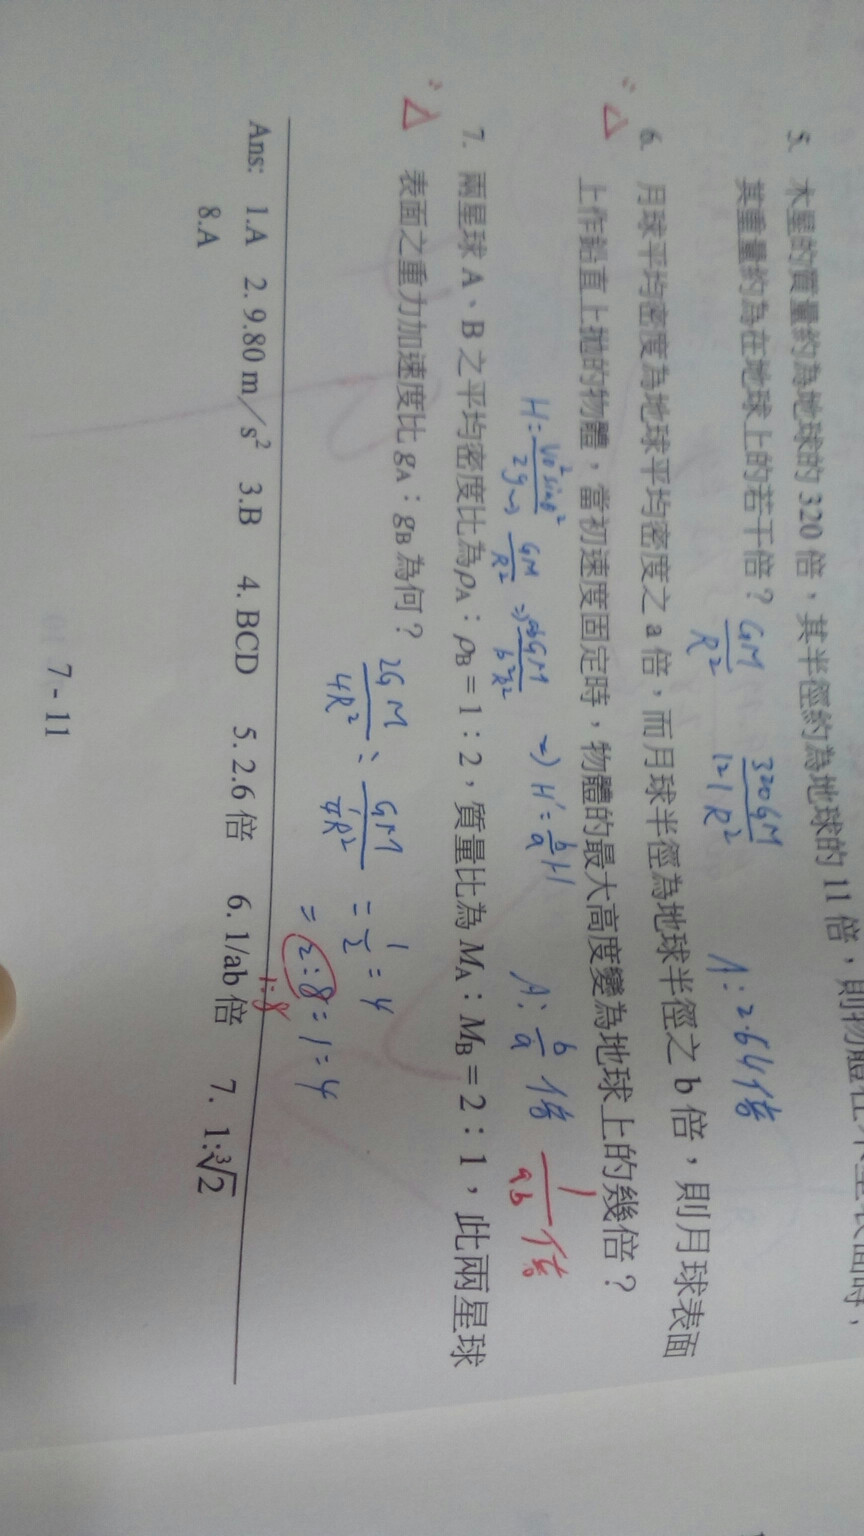 5. 木星的質量約為地球的 320 倍，其半徑約為地球的 11 倍，則物體在木星表面時，
其重量約為在地球上的若干倍？ GM/R² 320GM/121R² A:2.64倍
6. 月球平均密度為地球平均密度之 a 倍，而月球半徑為地球半徑之 b 倍，則月球表面
上作鉛直上拋的物體，當初速度固定時，物體的最大高度變為地球上的幾倍？
GM/R² ⇒ H' = b/a H A: b/a 倍 1/ab 倍
7. 兩星球 A、B 之平均密度比為 ρA：ρB = 1：2，質量比為 MA：MB = 2：1，此兩星球
表面之重力加速度比 gA：gB 為何？
2GM/4R² : GM/R² = 1/2 = 4
= 2:8 = 1=4
1:8
Ans: 1.A 2. 9.80 m／s² 3.B 4. BCD 5. 2.6 倍 6. 1/ab 倍 7. 1:∛2
8.A
7 - 11